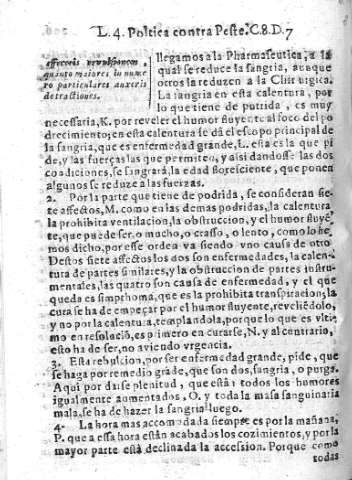 L. 4. Politica contra Peste. C. 8. D. 7
effectris revulsionem
quinto maiores in nume
ro particulares auxeris
detractiones.
llegamos a la Pharmaseutica, a la
qual se reduce la sangria, aunque
otros la reduzen a la Chirurgica.
La sangria en esta calentura, por
lo que tiene de putrida, es muy
necessaria, K. por reveler el humor fluyente al foco del po
drecimiento; en esta calentura se dà el escopo principal de
la sangria, que es enfermedad grande, L. esta es la que pi
de, y las fuerças las que permiten, y assi dandosse las dos
condiciones, se sangrarà, la edad floresciente, que ponen
algunos se reduze a las fuerzas.
2. Por la parte que tiene de podrida, se consideran sie-
te affectos, M. como en las demas podridas, la calentura
la prohibita ventilacion, la obstruccion, y el humor fluye
te, que puede ser, o mucho, o crasso, o lento, como lo he-
mos dicho, por esse orden va siendo vno causa de otro
Destos siete affectos los dos son enfermedades, la calen-
tura de partes similares, y la obstruccion de partes instru-
mentales, las quatro son causa de enfermedad, y el que
queda es simpthoma, que es la prohibita transpiracion, la
cura se ha de empeçar por el humor fluyente, reveliēdolo,
y no por la calentura, templandola, por que lo que es vlti
mo en resoluciō, es primero en curarse, N. y al contrario,
esto ha de ser, no aviendo vrgencia.
3. Esta rebulcion, por ser enfermedad grande, pide, que
se haga por remedio grãde, que son dos, sangria, o purga.
Aqui por darse plenitud, que està todos los humores
igualmente aumentados, O. y toda la masa sanguinaria
mala, se ha de hazer la sangria luego.
4. La hora mas accomodada siempre es por la mañana,
P. que a essa hora estàn acabados los cozimientos, y por la
mayor parte està declinada la accession. Porque como
todas